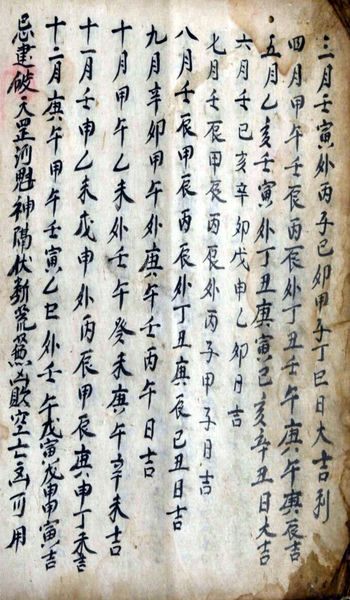 三月壬寅外丙子己卯甲子丁巳日大吉利
四月甲午壬辰丙辰外丁丑壬午庚午庚辰吉
五月乙亥壬寅外丁丑庚寅己亥辛丑日大吉
六月壬己亥辛卯戊申乙卯日吉
七月壬辰甲辰丙辰外丙子甲子日吉
八月壬辰甲辰丙辰外丁丑庚辰己丑日大吉
九月辛卯甲午外庚午壬丙午日吉
十月甲午乙未外壬午癸未庚午辛未吉
十一月壬申乙未戊申外丙辰甲辰庚申丁未吉
十二月庚午甲午壬寅乙巳外壬午戊寅戊申甲寅吉
忌建破天罡河魁神隔伏断荒芜凶败空亡不可用